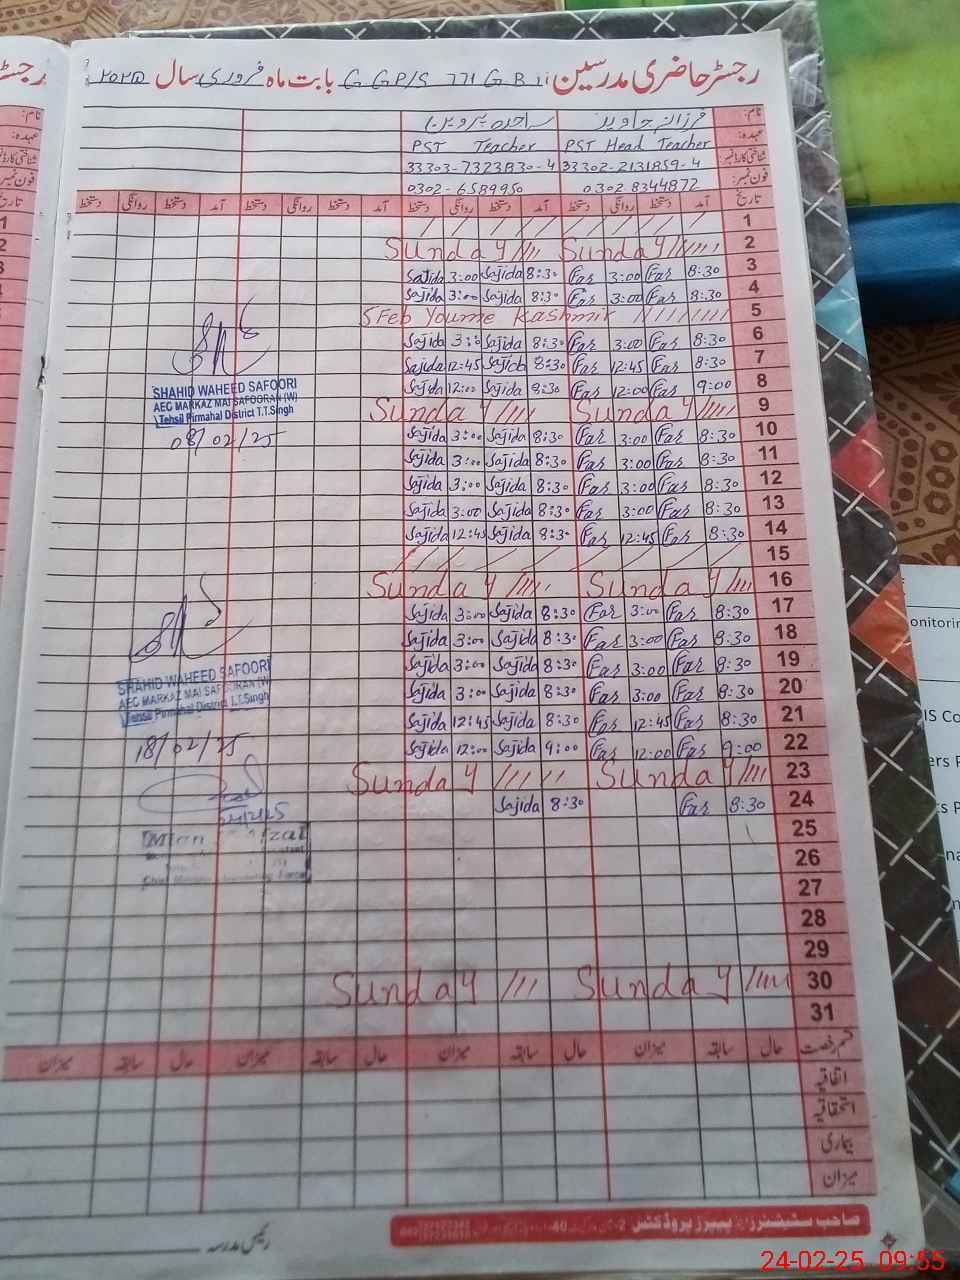 رجسٹر حاضری مدرسین G GP/S 771 G B ii بابت ماہ فروری سال ۲۰۲۵
نام: فرزانہ جاوید ساجدہ پروین
عہدہ: PST Head Teacher PST Teacher
شناختی کارڈ نمبر: 33302-2131859-4 33303-7323830-4
فون نمبر: 0302 8344872 0302-6589950
تاریخ آمد دستخط روانگی دستخط آمد دستخط روانگی دستخط آمد دستخط روانگی دستخط آمد دستخط روانگی دستخط
1
Sunday Sunday 2
Sajida 3:00 Sajida 8:30 Far 3:00 Far 8:30 3
Sajida 3:00 Sajida 8:30 Far 3:00 Far 8:30 4
5 Feb Youme Kashmir 5
Sajida 3:00 Sajida 8:30 Far 3:00 Far 8:30 6
Sajida 12:45 Sajida 8:30 Far 12:45 Far 8:30 7
Sajida 12:00 Sajida 8:30 Far 12:00 Far 9:00 8
Sunday Sunday 9
Sajida 3:00 Sajida 8:30 Far 3:00 Far 8:30 10
Sajida 3:00 Sajida 8:30 Far 3:00 Far 8:30 11
Sajida 3:00 Sajida 8:30 Far 3:00 Far 8:30 12
Sajida 3:00 Sajida 8:30 Far 3:00 Far 8:30 13
Sajida 12:45 Sajida 8:30 Far 12:45 Far 8:30 14
15
Sunday Sunday 16
Sajida 3:00 Sajida 8:30 Far 3:00 Far 8:30 17
Sajida 3:00 Sajida 8:30 Far 3:00 Far 8:30 18
Sajida 3:00 Sajida 8:30 Far 3:00 Far 8:30 19
Sajida 3:00 Sajida 8:30 Far 3:00 Far 8:30 20
Sajida 12:45 Sajida 8:30 Far 12:45 Far 8:30 21
Sajida 12:00 Sajida 9:00 Far 12:00 Far 9:00 22
Sunday Sunday 23
Sajida 8:30 Far 8:30 24
25
26
27
28
29
Sunday Sunday 30
31
SHAHID WAHEED SAFOORI
AEO MARKAZ MAI SAFOORAN (W)
Tehsil Pirmahal District T.T.Singh
08/02/25
SHAHID WAHEED SAFOORI
AEO MARKAZ MAI SAFOORAN (W)
Tehsil Pirmahal District T.T.Singh
18/02/25
Mian
قسم رخصت حال سابقہ میزان حال سابقہ میزان حال سابقہ میزان حال سابقہ میزان
اتفاقیہ
استحقاقیہ
بیماری
میزان
رئیس مدرسہ
صاحب سٹیشنرز اینڈ پیپرز پروڈکٹس
onitorin
IS Co
ers P
ts P
24-02-25 09:55